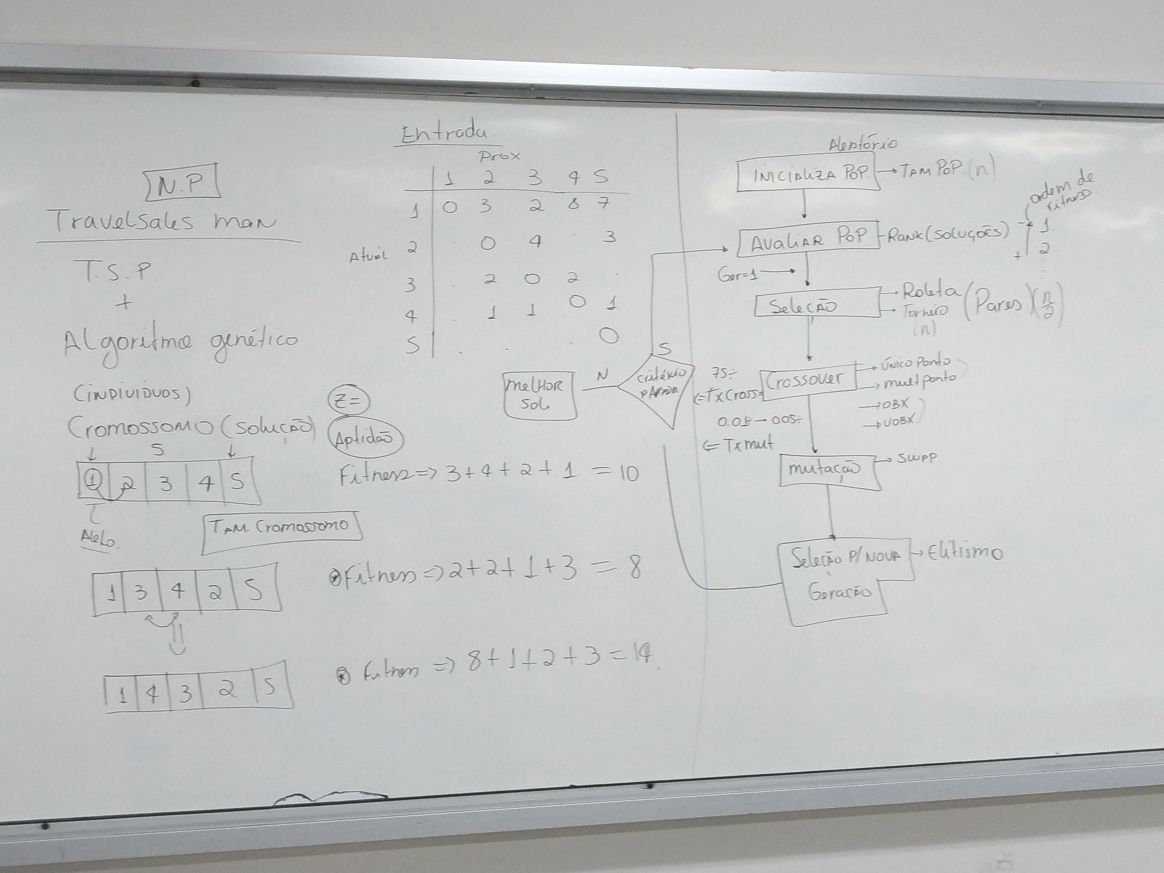 N.P
Travelsales man
T.S.P
+
Algoritmo genético
(INDIVIDUOS)
Cromossomo (solução)
5
1 2 3 4 5
Alelo.
TAM. Cromossomo
1 3 4 2 5
1 4 3 2 5
Entrada
Prox
1 2 3 4 5
1 0 3 2 8 7
Atual 2 . 0 4 . 3
3 . 2 0 2 .
4 . 1 1 0 1
5 . . . 0
Z=
Aptidão
Fitness => 3+4+2+1 = 10
Fitness => 2+2+1+3 = 8
Fitness => 8+1+2+3 = 14
MELHOR
SOL
N
critério
PARADA
S
Aleatório
INICIALIZA POP.
TAM POP. (n)
AVALIAR POP
RANK (SOLUÇÕES)
ordem de
fitness
- 1
+ 2
Ger=1
Seleção
Roleta
Torneio
(n)
(Pares) (n/2)
75%
<= Tx Cross
Crossover
ÚNICO PONTO
MULTPONTO
OBX
UOBX
<= Tx mut
mutação
SWPP
Seleção P/ NOVA
Geração
Elitismo